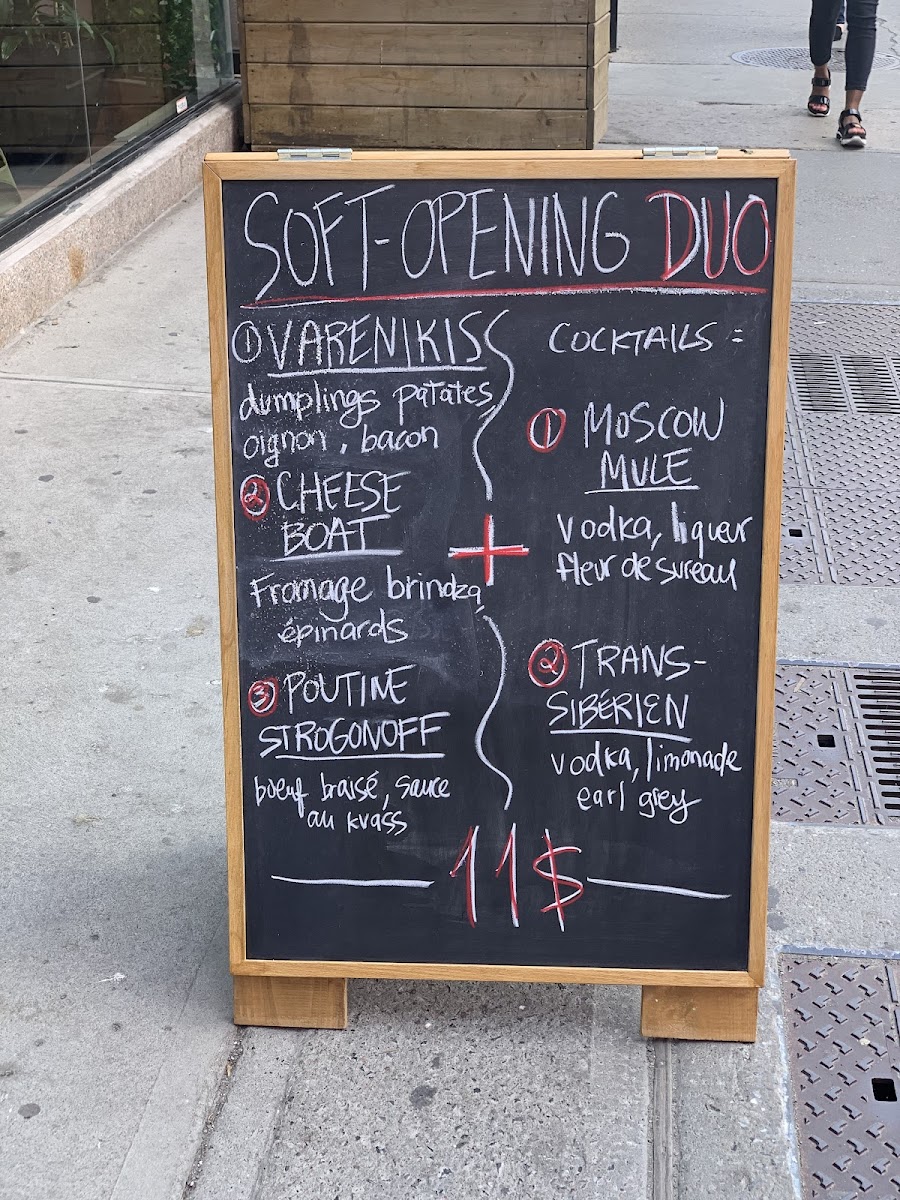 SOFT-OPENING DUO
① VARENIKIS
dumplings patates,
oignon, bacon
② CHEESE
BOAT
Fromage brindza,
épinards
③ POUTINE
STROGONOFF
bœuf braisé, sauce
au kvass
+
COCKTAILS =
① MOSCOW
MULE
vodka, liqueur
fleur de sureau
② TRANS-
SIBÉRIEN
vodka, limonade
earl grey
11$